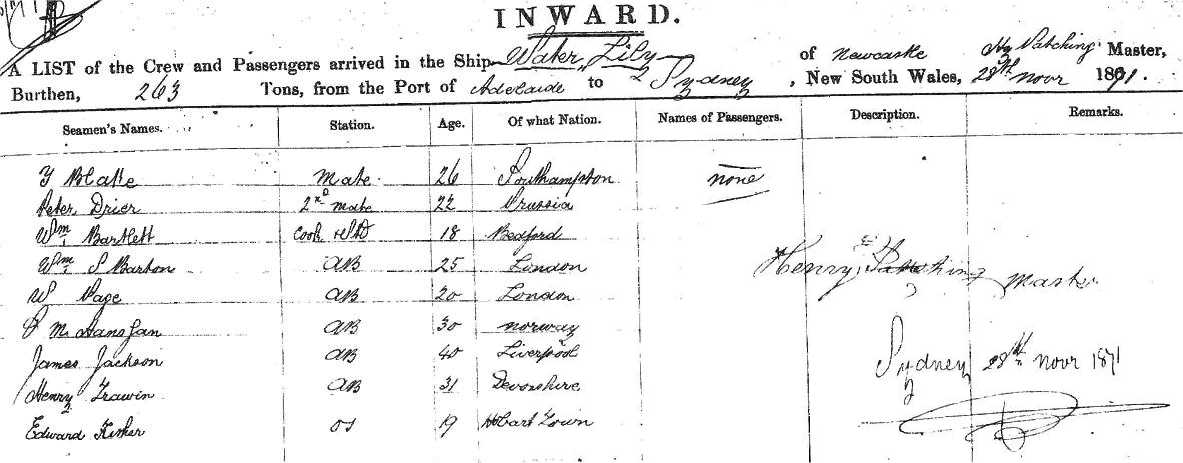 INWARD.
A LIST of the Crew and Passengers arrived in the Ship Water Lily of Newcastle Hy Patching Master,
Burthen, 263 Tons, from the Port of Adelaide to Sydney, New South Wales, 28th Novr 1871.
Seamen's Names. Station. Age. Of what Nation. Names of Passengers. Description. Remarks.
Y Blake Mate 26 Southampton none
Peter Drier 2nd Mate 22 Prussia
Wm Bartlett Cook & Std 18 Bedford
Wm S Barton AB 25 London
Henry Patching Master
W Page AB 20 London
P M Hansfan AB 30 Norway
James Jackson AB 40 Liverpool
Sydney 28th Novr 1871
Henry Trawin AB 31 Devonshire
Edward Fisher OS 19 Hobart Town